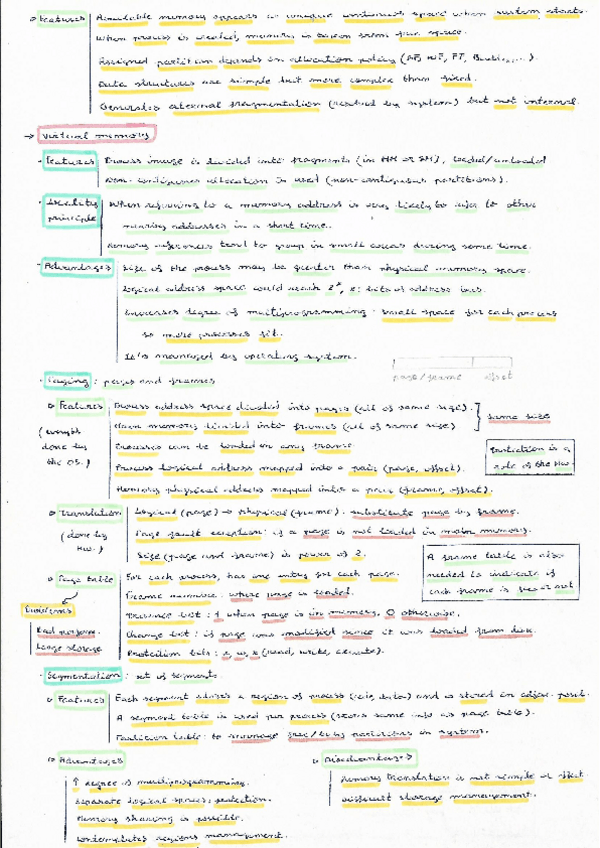 Features | Available memory appears as unique continuous space when system starts.
When process is created, memory is taken from free space.
Assigned partition depends on allocation policy (BF, WF, FF, Buddy, ...).
Data structures are simple but more complex than fixed.
Generates external fragmentation (resolved by system) but not internal.
→ Virtual memory
· Features | Process image is divided into fragments (in MM or SM), loaded/unloaded
Non-contiguous allocation is used (non-contiguous partitions).
· Locality principle | When referring to a memory address is very likely to refer to other
memory addresses in a short time.
Memory references tend to group in small areas during some time.
· Advantages | Size of the process may be greater than physical memory space.
Logical address space could reach 2ˣ, x: bits of address bus.
Increases degree of multiprogramming · small space for each process
so more processes fit.
It's managed by operating system.
page/frame offset
· Paging: pages and frames
Features | Process address space divided into pages (all of same size).
Main memory divided into frames (all of same size)
same size
(assign done by the OS.)
Processes can be loaded in any frame.
Process logical address mapped into a pair (page, offset).
Memory physical address mapped into a pair (frame, offset).
Protection is a role of the HW.
Translation | Logical (page) → Physical (frame). substitute page by frame.
(done by HW.)
Page fault exception: if a page is not loaded in main memory.
Size (page and frame) is power of 2.
A frame table is also
needed to indicate if
each frame is free or not
Page table | For each process, has one entry for each page.
Frame number: where page is loaded.
Presence bit: 1 when page is in memory, 0 otherwise.
Change bit: if page was modified since it was loaded from disk.
Protection bits: r, w, x (read, write, execute).
Problems
Bad perform.
Large storage
· Segmentation: set of segments
Features | Each segment stores a region of process (code, data) and is stored in
A segment table is used per process (stores same info as page table).
Partition table: to manage free/busy partitions in system.
Advantages
↑ degree of multiprogramming.
Separate logical spaces, protection.
Memory sharing is possible.
Contemplates regions management.
Disadvantages
Memory translation is not simple or effect.
Different storage management.